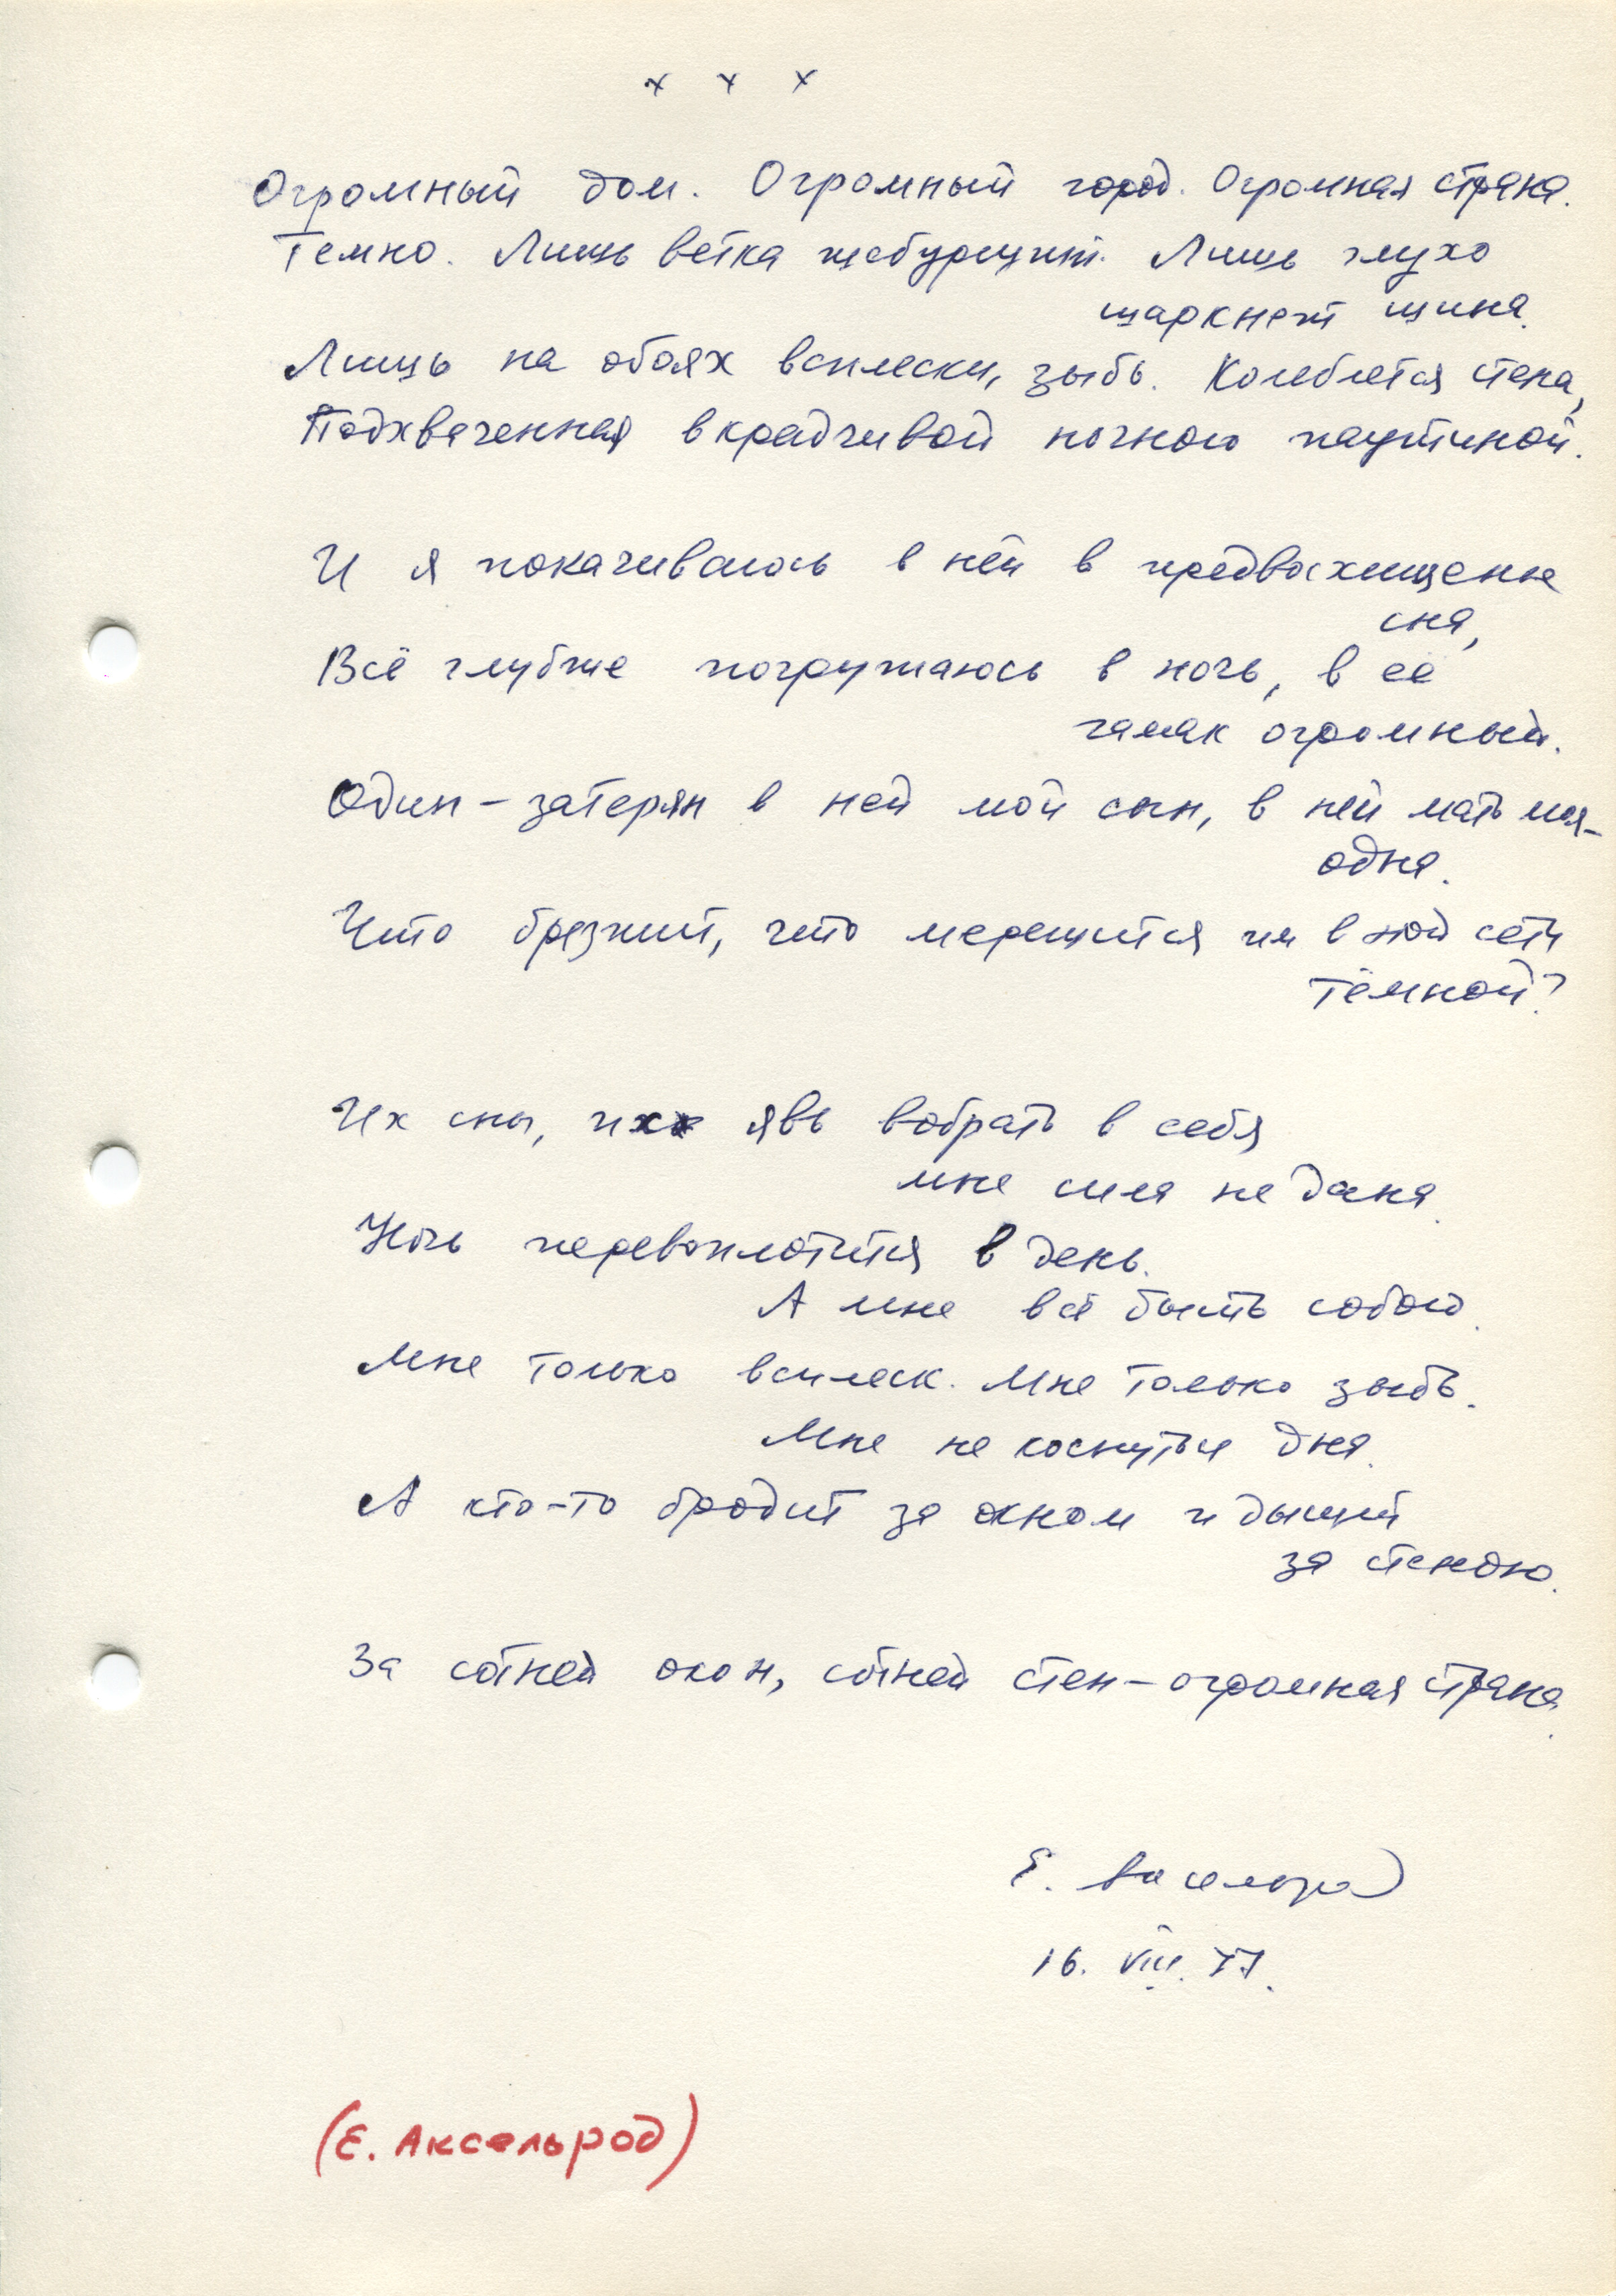 х х х
Огромный дом. Огромный город. Огромная страна.
Темно. Лишь ветка прошуршит. Лишь глухо
шаркнет шина.
Лишь на обоях всплески, зыбь. Колеблется стена,
Подхваченная вкрадчивой ночною паутиной.
И я покачиваюсь в ней в предвосхищенье
сна,
Всё глубже погружаюсь в ночь, в её
гамак огромный.
Один – затерян в ней мой сын, в ней мать моя –
одна.
Что брезжит, что мерещится им в этой сети
тёмной?
Их сны, их явь вобрать в себя
мне сила не дана.
Ночь перевоплотится в день.
А мне всё быть собою.
Мне только всплеск. Мне только зыбь.
Мне не коснуться дна.
А кто-то бродит за окном и дышит
за стеною.
За сотней окон, сотней стен – огромная страна.
Е. Аксельрод
16. VIII. 77.
(Е. Аксельрод)